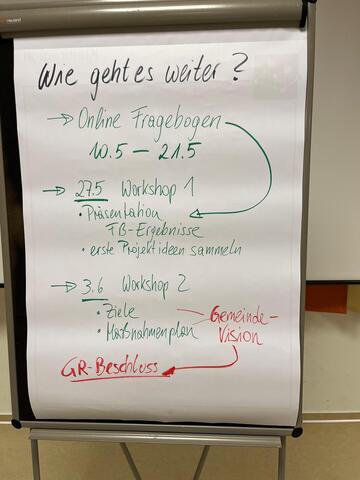 Wie geht es weiter?
→ Online Fragebogen
10.5 – 21.5
→ 27.5 Workshop 1
• Präsentation
FB-Ergebnisse
• erste Projektideen sammeln
→ 3.6 Workshop 2
• Ziele
• Maßnahmenplan
Gemeinde-
Vision
GR-Beschluss